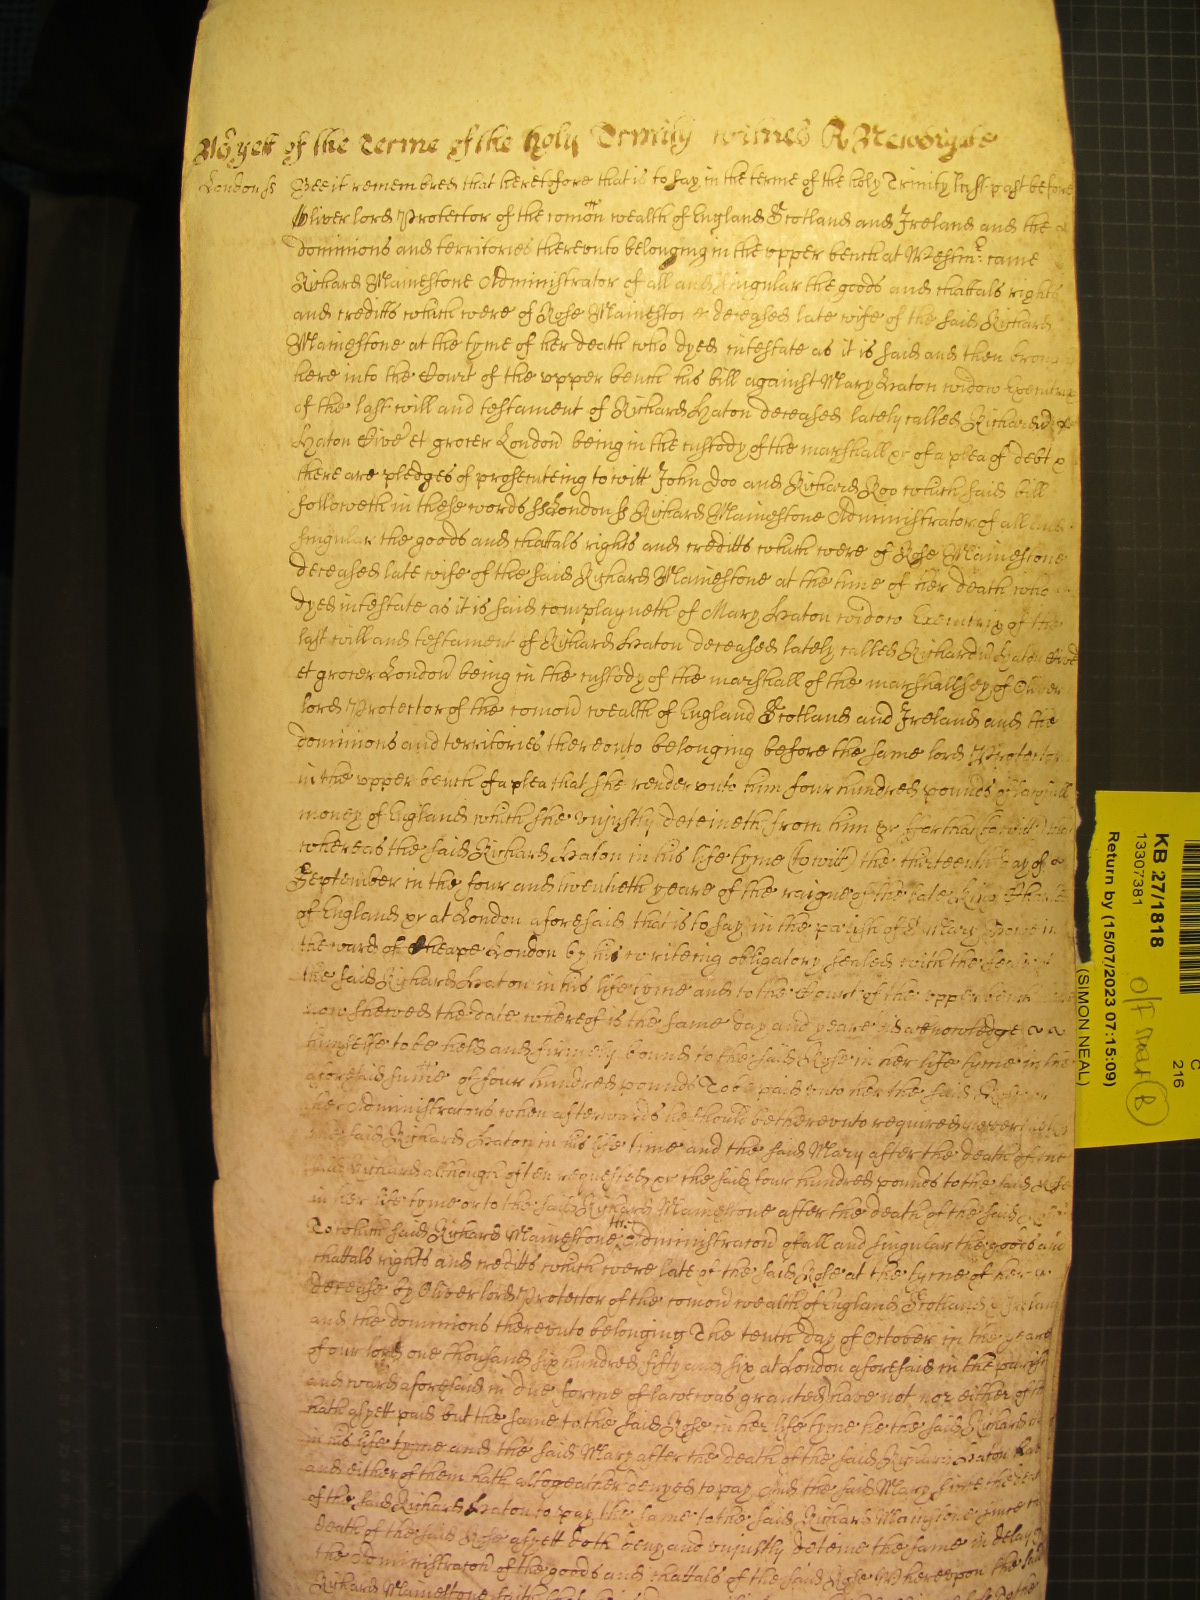 As yett of the Terme of the holy Trinity witnes R Newdigate
London ss Bee it remembred that heretofore that is to say in the terme of the holy Trinity last past before
Oliver lord Protector of the comon wealth of England Scotland and Ireland and the
dominions and territories thereunto belonging in the upper bench at Westmr came
Richard Mainestone Administrator of all and singular the goods and chattals rights
and creditts which were of Rose Mainestone deceased late wife of the said Richard
Mainestone at the tyme of her death who dyed intestate as it is said and then brought
here into the Court of the upper bench his bill against Mary Haton widow Executrix
of the last will and testament of Richard Haton deceased lately called Richard
Haton Civē et grocer London being in the custody of the marshall &c of a plea of debt &
there are pledges of prosecuteing to witt John Doo and Richard Roo which said bill
followeth in these words ss London ss Richard Mainestone Administrator of all and
singular the goods and chattals rights and creditts which were of Rose Mainestone
deceased late wife of the said Richard Mainestone at the time of her death who
dyed intestate as it is said complayneth of Mary Haton widow Executrix of the
last will and testament of Richard Haton deceased lately called Richard Haton Civē
et grocer London being in the custody of the marshall of the marshallsey of Oliver
lord Protector of the comon wealth of England Scotland and Ireland and the
dominions and territories thereonto belonging before the same lord Protector
in the upper bench of a plea that she render unto him four hundred pounds of lawfull
money of England which she unjustly deteineth from him &c for that to witt that
whereas the said Richard Haton in his life tyme (to witt) the thirteenth day of
September in the four and twentieth yeare of the raigne of the late King Charles
of England &c at London aforesaid that is to say in the parish of St Mary Bowe in
the ward of Cheape London by his writeing obligatory sealed with the seale of
the said Richard Haton in his life tyme and to the Court of the upper bench here
now shewed the date whereof is the same day and yeare did acknowledge
himselfe to be held and firmely bound to the said Rose in her life tyme in the
aforesaid sume of four hundred pounds To be paid unto her the said Rose or
her Administrators when afterwards he should be thereunto required neverthelesse
the said Richard Haton in his life time and the said Mary after the death of the
said Richard although often requested &c the said four hundred pounds to the said Rose
in her life tyme or to the said Richard Mainestone after the death of the said Rose
To which said Richard Mainestone the Administracon of all and singular the goods and
chattals rights and creditts which were late of the said Rose at the tyme of her
decease by Oliver lord Protector of the comon wealth of England Scotland & Ireland
and the dominions thereunto belonging The tenth day of October in the yeare
of our lord one thousand six hundred fifty and six at London aforesaid in the parish
and ward aforesaid in due forme of lawe was granted have not nor either of them
hath as yett paid but the same to the said Rose in her life tyme he the said Richard
in his life tyme and the said Mary after the death of the said Richard Haton hath
and either of them hath altogeather denyed to pay And the said Mary since the death
of the said Richard Haton to pay the same to the said Richard Mainestone since the
death of the said Rose as yett doth deny and unjustly deteine the same in delay of
the Administracon of the goods and chattals of the said Rose Whereupon the said
Richard Mainestone
KB 27/1818
13307381
Return by (15/07/2023 07:15:09)
(SIMON NEAL)
C
216